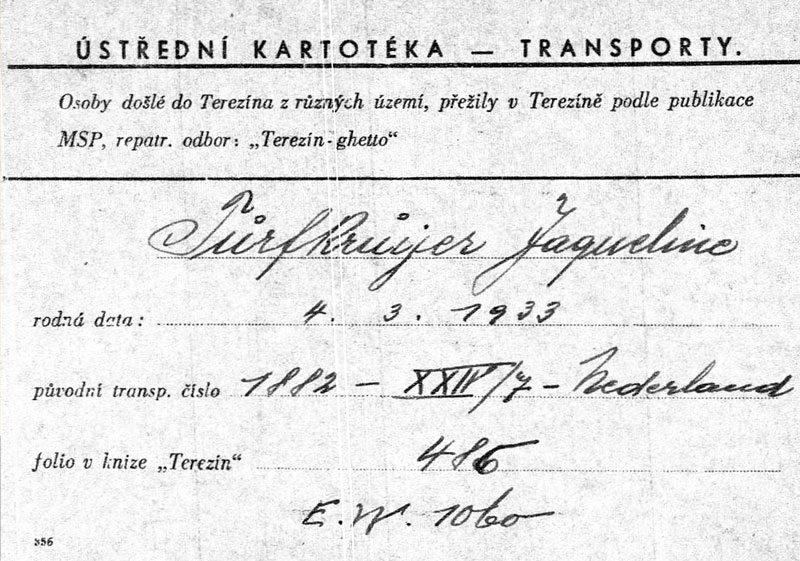 ÚSTŘEDNÍ KARTOTÉKA — TRANSPORTY.
Osoby došlé do Terezína z různých území, přežily v Terezíně podle publikace
MSP, repatr. odbor: „Terezín-ghetto“
Tůrfkrůijer Jaqueline
rodná data: 4. 3. 1933
původní transp. číslo 1882 — XXIV/7 — Nederland
folio v knize „Terezín“ 486
E.W. 1060
356